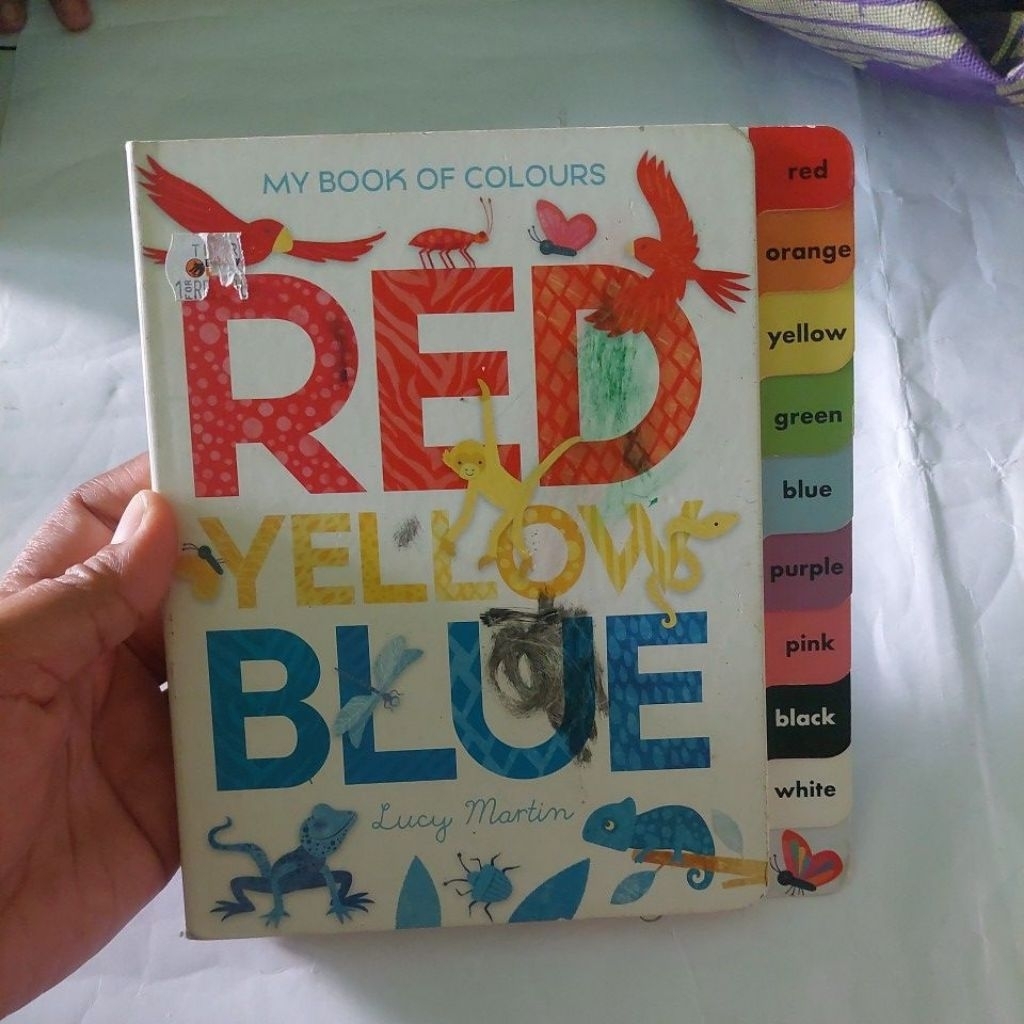 MY BOOK OF COLOURS
RED
YELLOW
BLUE
Lucy Martin
red
orange
yellow
green
blue
purple
pink
black
white